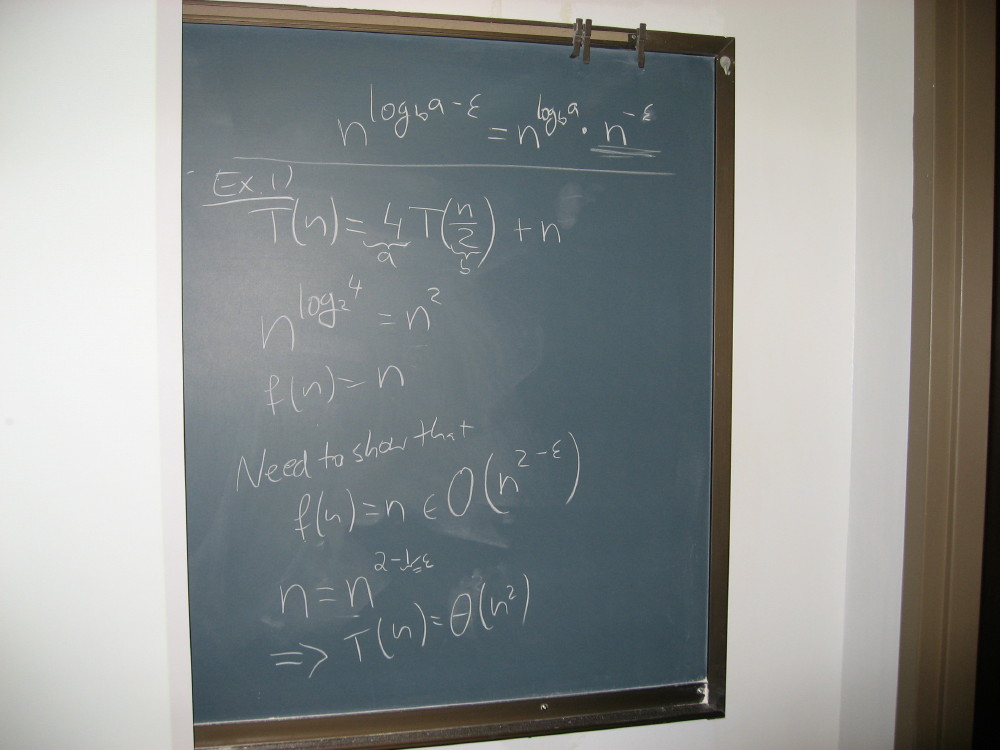 n^{log_b a - ε} = n^{log_b a} · n^{-ε}
Ex. 1)
T(n) = 4 T(n/2) + n
a b
n^{log_2 4} = n^2
f(n) = n
Need to show that
f(n) = n ∈ O(n^{2-ε})
n = n^{2-1=ε}
=> T(n) = Θ(n^2)